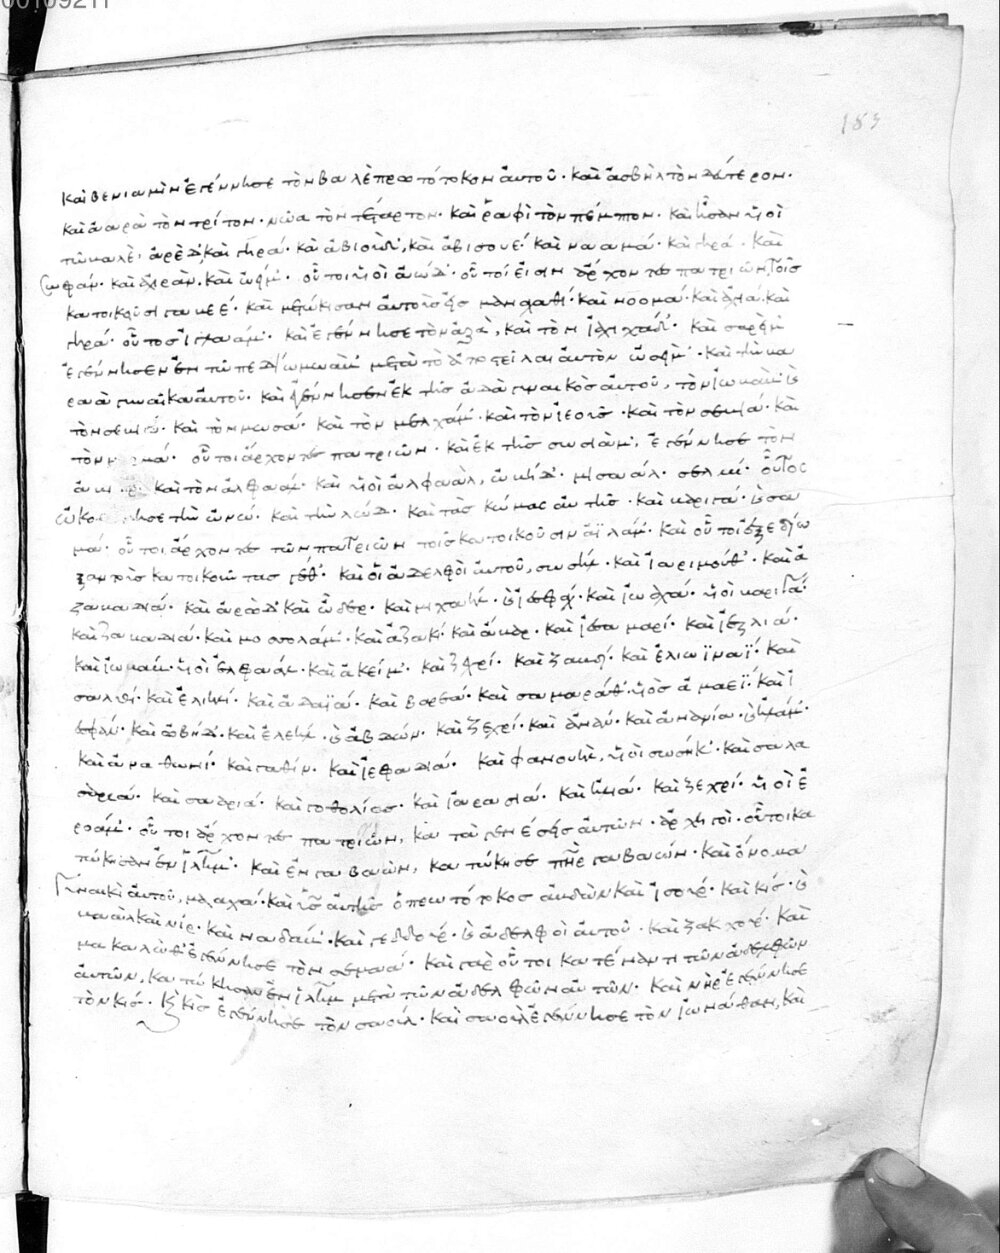 00109211
183
καὶ βενιαμὶν ἐγέννησε τὸν βαλὲ πρωτότοκον ἀυτοῦ· καὶ ἀσβὴλ τὸν δεύτερον·
καὶ ἀαρὰ τὸν τρίτον· νῶα τὸν τέταρτον· καὶ ῥαφὶ τὸν πέμπτον· καὶ ἦσαν υἱοὶ
τῶ βαλὲ· ἀρὲδ, καὶ γηρά· καὶ ἀβιοὺδ, καὶ ἀβισουέ· καὶ νααμά· καὶ γηρά· καὶ
σωφάμ· καὶ· καὶ ὠφίμ· οὗτοι υἱοὶ ἀώδ· οὗτοί εἰσιν ἄρχοντες πατριῶν τοῖς
κατοικοῦσι γαβεέ· καὶ μετώκισαν ἀυτοὺς εἰς μαναχαθί· καὶ νοομά· καὶ ἀχιά· καὶ
γηρά· οὗτος ἰγλαάμ· καὶ ἐγέννησε τὸν ἀζὰ, καὶ τὸν ἰαχιχάδ· καὶ σαρὴμ
ἐγέννησεν ἐν τῶ πεδίω μωὰβ μετὰ τὸ ἀποστεῖλαι ἀυτὸν ὠσὴμ· καὶ τὴν βα
αρὰ γυναῖκα ἀυτοῦ· καὶ ἐγέννησεν ἐκ τῆς ἀδὰ γυναικὸς ἀυτοῦ, τὸν ἰωβὰβ· καὶ
τὸν σεβιά· καὶ τὸν μισά· καὶ τὸν μελχάμ· καὶ τὸν ἰεοὺς· καὶ τὸν σεβιά· καὶ
τὸν οὗτοι ἄρχοντες πατριῶν· καὶ ἐκ τῆς σωσιὰμ, ἐγέννησε τὸν
καὶ τὸν ἀλφαάλ· καὶ υἱοὶ ἀλφαὰλ, ὠβήδ· μισαάλ· σεμμή· οὗτος
ὠκο τὴν ὠνώ· καὶ τὴν λώδ· καὶ τὰς κώμας ἀυτῆς· καὶ βαριγά· καὶ σαμ
μά· οὗτοι ἄρχοντες τῶν πατριῶν τοῖς κατοικοῦσιν ἀϊλάμ· καὶ οὗτοι ἐξεδίω
ξαν τοὺς κατοικοῦντας γέθ· καὶ οἱ ἀδελφοὶ ἀυτοῦ, σωσὴκ· καὶ ἰαριμούθ· καὶ ἀ
ζαβαδιά· καὶ ἀρώδ· καὶ ὦδερ· καὶ μιχαήλ· καὶ ἰεσφάχ· καὶ ἰωαχά· υἱοὶ βαριγά·
καὶ ζαβαδιά· καὶ μοσολάμ· καὶ ἀζακί· καὶ ἀβάρ· καὶ ἰασαμαρί· καὶ ἰεζλιά·
καὶ ἰωβάβ· υἱοὶ ἐλφαάλ· καὶ ἀκείμ· καὶ ζεχρί· καὶ ζαβδί· καὶ ἐλιωϊναΐ· καὶ
σαλιθί· καὶ ἐλιηλί· καὶ ἀδαϊά· καὶ βαραιά· καὶ σαμαράθ· υἱὸς σαμαεΐ· καὶ ἰ
εσφάν· καὶ ὠβήδ· καὶ ἐλεήλ· καὶ ἀβδών· καὶ ζεχρί· καὶ ἀνάν· καὶ ἀνανία· καὶ ἠλάμ·
καὶ ἀναθωθί· καὶ γαθίν· καὶ ἰεφαδιά· καὶ φανουὴλ, υἱοὶ σωσήκ· καὶ σαμσα
αριά· καὶ σααριά· καὶ γοθολίας· καὶ ἰαρασιά· καὶ ἠλιά· καὶ ζεχρί· υἱοὶ ἰε
ροάμ· οὗτοι ἄρχοντες πατριῶν, κατὰ γενέσεις ἀυτῶν· ἀρχηγοί· οὗτοι κα
τώκησαν ἐν ἰλῆμ· καὶ ἐν γαβαὼν, κατώκησε πὴρ γαβαών· καὶ ὄνομα
γυναικὶ ἀυτοῦ, μααχά· καὶ υἱὸς ἀυτῆς ὁ πρωτότοκος ἀβδὼν· καὶ ἰσούρ· καὶ κίς· καὶ
βαὰλ καὶ νίρ· καὶ ναδάβ· καὶ γεδδούρ· καὶ ἀδελφοὶ ἀυτοῦ· καὶ ζακχούρ· καὶ
μακαλώθ ἐγέννησε τὸν σεμαά· καὶ γὰρ οὗτοι κατέναντι τῶν ἀδελφῶν
ἀυτῶν, κατώκησαν ἐν ἰλῆμ μετὰ τῶν ἀδελφῶν ἀυτῶν. καὶ νὴρ ἐγέννησε
τὸν κίς· καὶ κὶς ἐγέννησε τὸν σαούλ· καὶ σαοὺλ ἐγέννησε τὸν ἰωνάθαν, καὶ